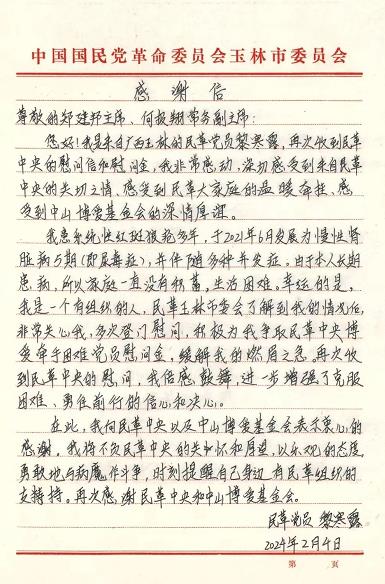 中国国民党革命委员会玉林市委员会
感谢信
尊敬的郑建邦主席、何报翔常务副主席：
您好！我是来自广西玉林的民革党员黎寒露，再次收到民革
中央的慰问信和慰问金，我非常感动，深切感受到来自民革
中央的关切之情，感受到民革大家庭的温暖眷挂，感
受到中山博爱基金会的深情厚谊。
我患系统性红斑狼疮多年，于2021年6月发展为慢性肾
脏病5期（即尿毒症），并伴随多种并发症。由于本人长期
患病，所以家庭一直没有积蓄，生活困难。幸运的是，
我是一个有组织的人，民革玉林市委会了解到我的情况后，
非常关心我，多次登门慰问，积极为我争取民革中央博
爱牵手困难党员慰问金，缓解我的燃眉之急。再次收
到民革中央的慰问，我倍感鼓舞，进一步增强了克服
困难、勇往前行的信心和决心。
在此，我向民革中央以及中山博爱基金会表示衷心的
感谢，我将不负民革中央的关怀和厚望，以乐观的态度，
勇敢地与病魔作斗争，时刻提醒自己身边有民革组织的
支持。再次感谢民革中央和中山博爱基金会。
民革党员 黎寒露
2024年2月4日
第 页